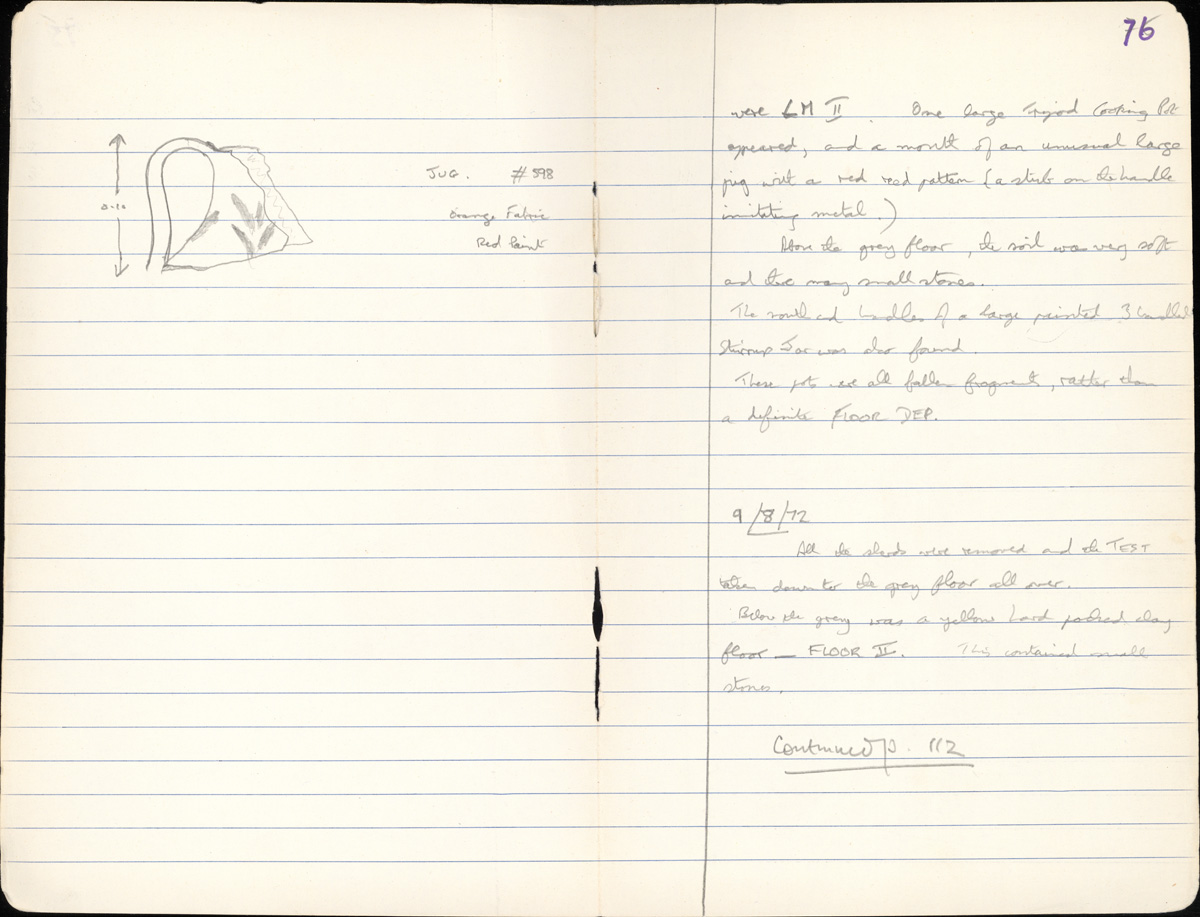 JUG. #598
Orange Fabric
Red Paint
0.10
76
were LM II. One large Tripod Cooking Pot
appeared, and a mouth of an unusual large
jug with a red reed pattern (a stub on the handle
imitating metal.)
Above the grey floor, the soil was very soft
and the many small stones.
The mouth and handles of a large painted 3 handled
Stirrup Jar was also found.
These pots were all fallen fragments, rather than
a definite FLOOR DEP.
9/8/72
All the sherds were removed and the TEST
taken down to the grey floor all over.
Below the grey was a yellow hard packed clay
floor — FLOOR II. This contained small
stones.
Continued p. 112